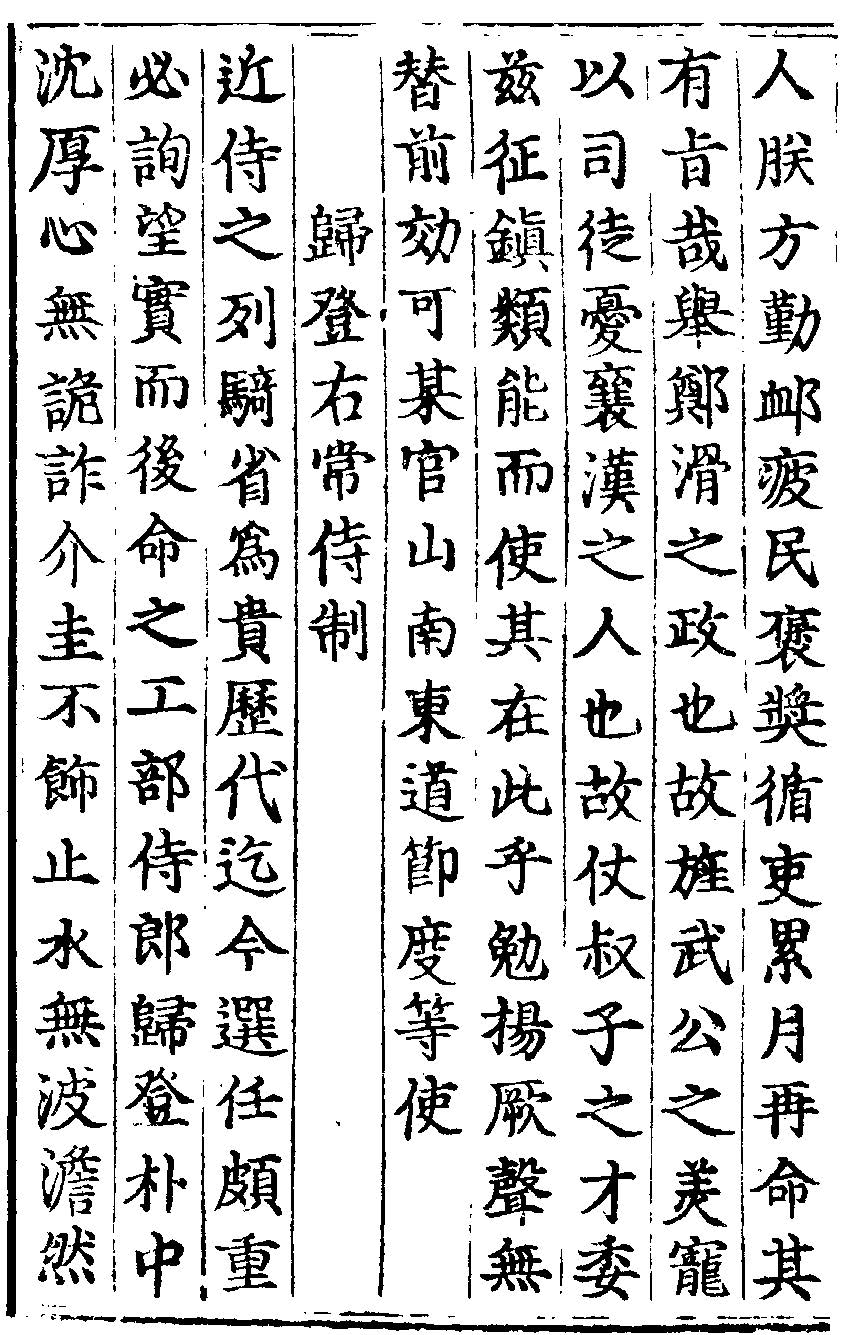 人朕方勤䘏疲民褒奬循吏累月再命其
有㫖哉舉鄭滑之政也故旌武公之美寵
以司徒憂襄漢之人也故仗叔子之才委
兹征鎮類能而使其在此乎勉揚厥聲無
替前効可某官山南東道節度等使
歸登右常侍制
近侍之列騎省爲貴歷代迄今選任頗重
必詢望實而後命之工部侍郎歸登朴中
沈厚心無詭詐介圭不飾止水無波澹然